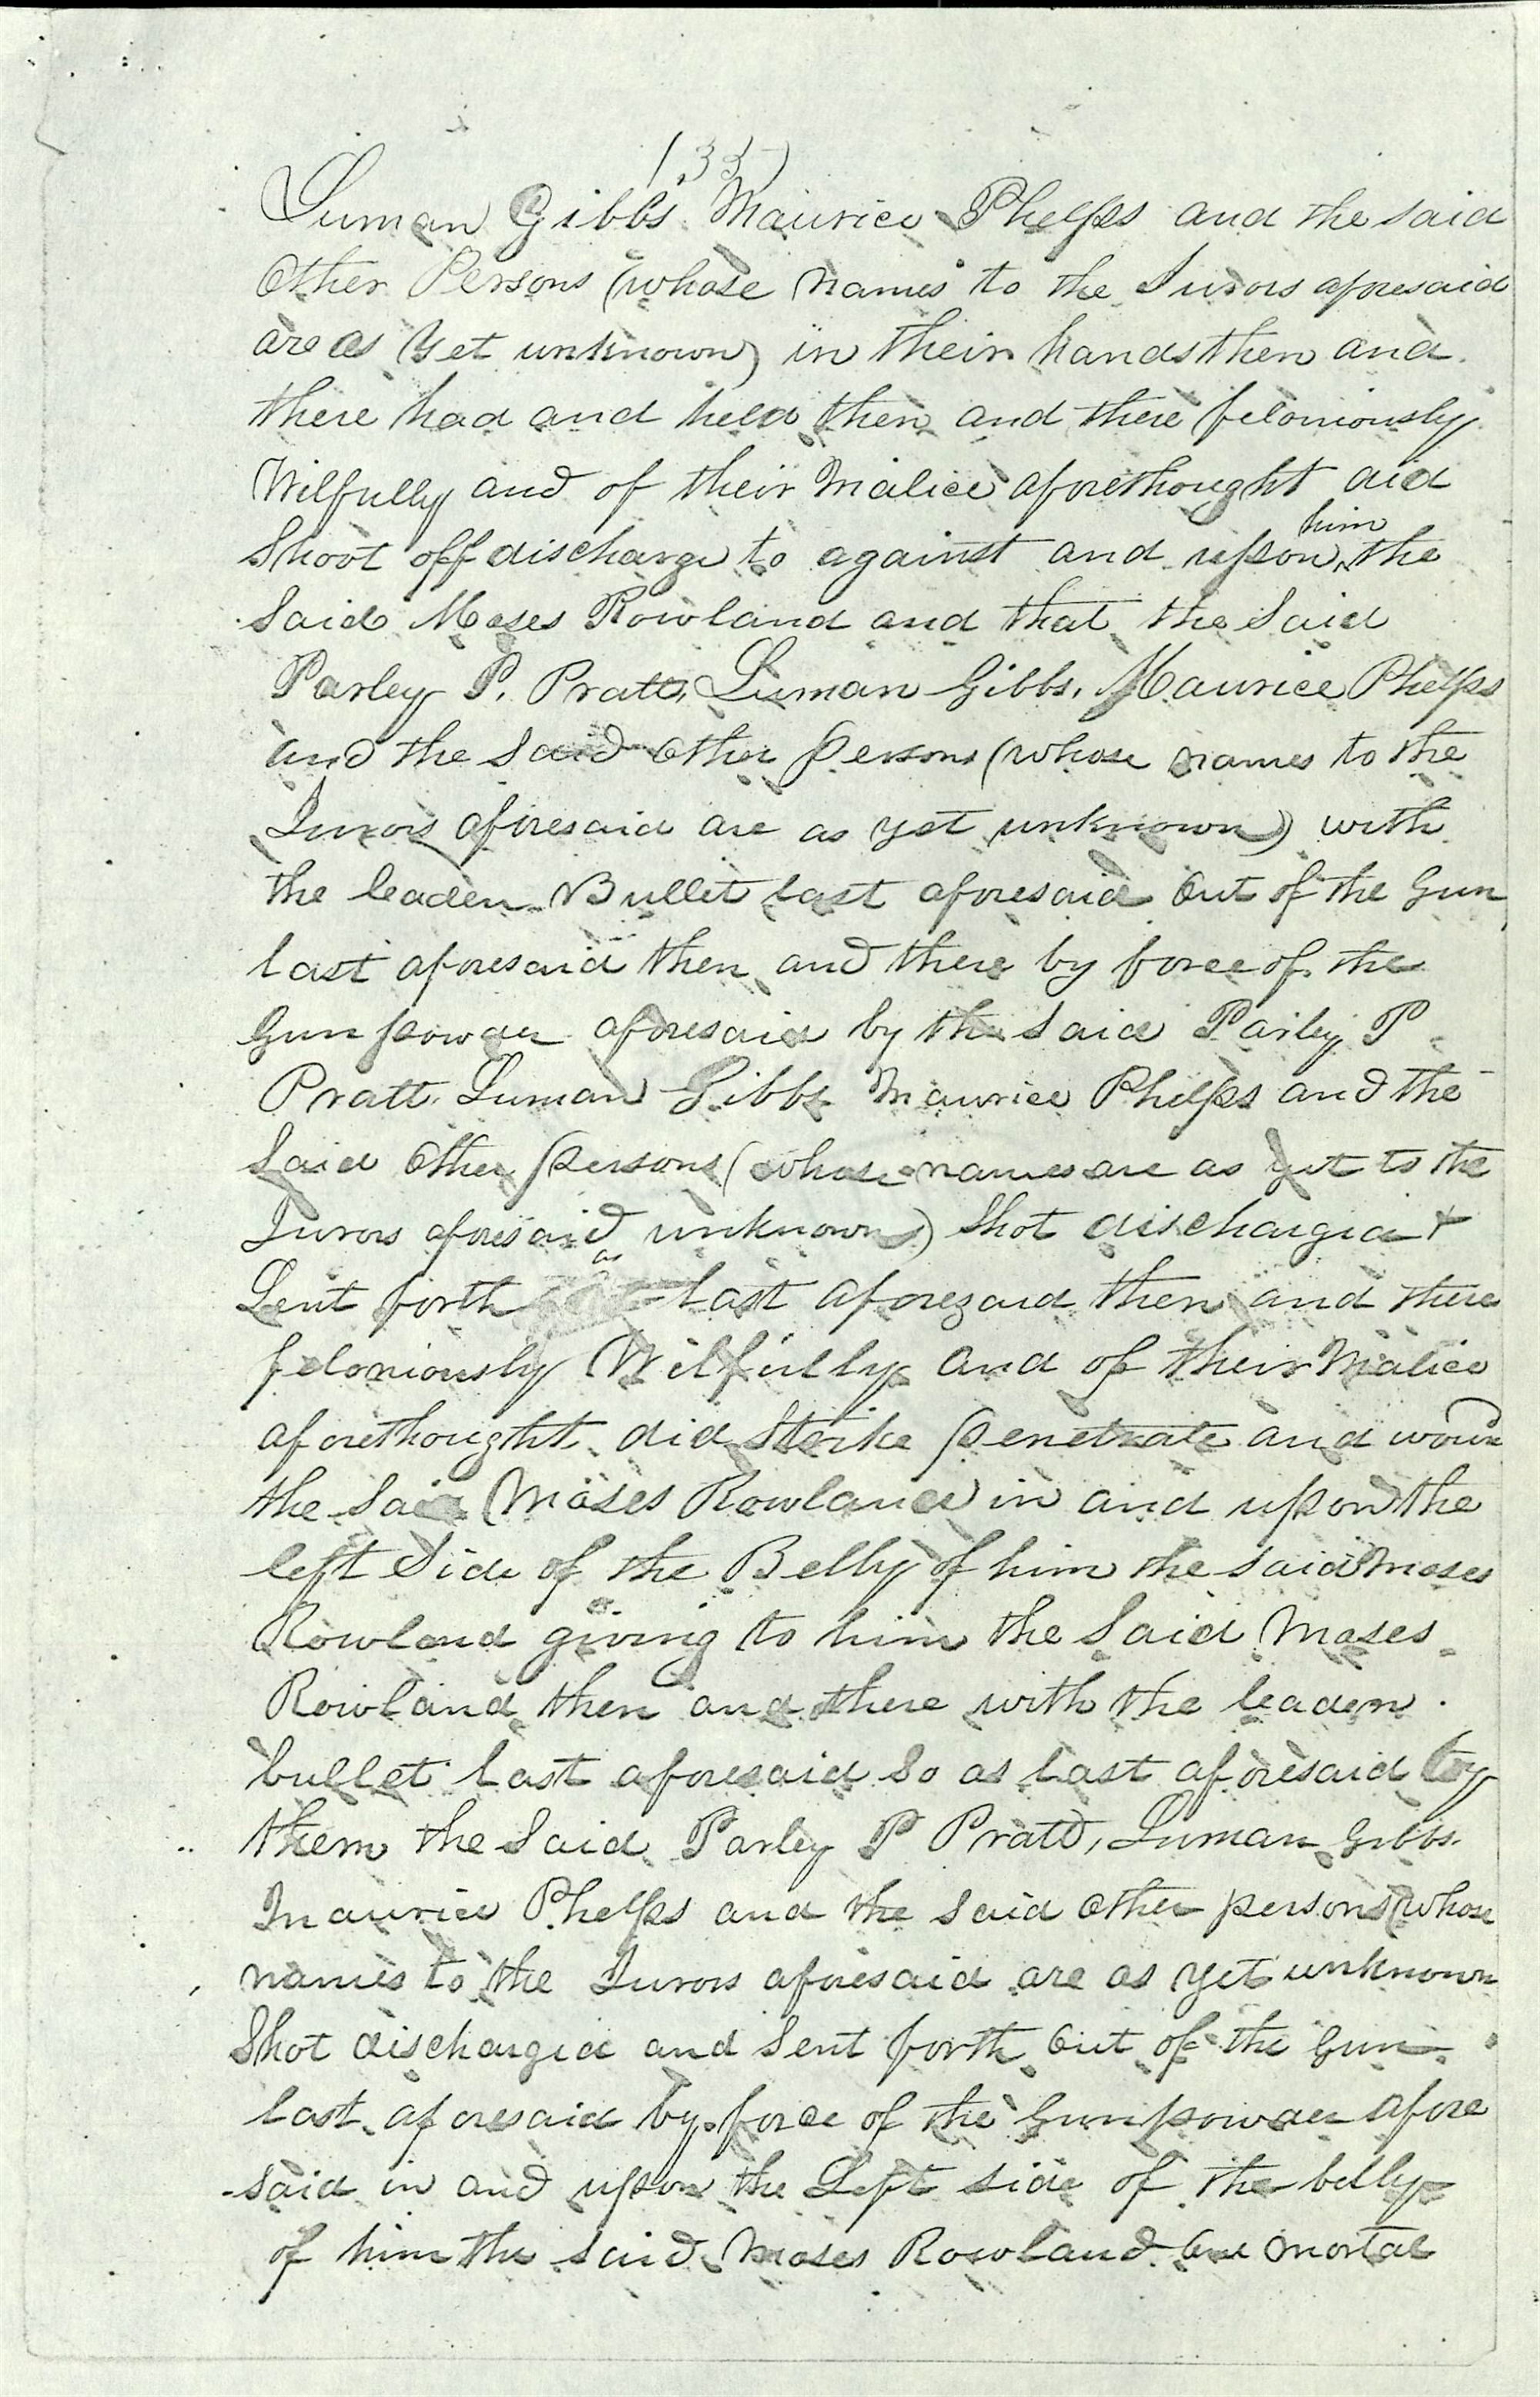 (33)
Luman Gibbs Maurice Phelps and the said
Other Persons (whose names to the Jurors aforesaid
are as yet unknown) in their hands then and
there had and held then and there feloniously
Wilfully and of their Malice aforethought did
Shoot off discharge to against and upon him the
Said Moses Rowland and that the Said
Parley P. Pratt, Luman Gibbs, Maurice Phelps
and the Said Other Persons (whose names to the
Jurors aforesaid are as yet unknown) with
the leaden Bullet last aforesaid Out of the Gun
last aforesaid then and there by force of the
Gun powder aforesaid by the Said Parley P
Pratt. Luman Gibbs Maurice Phelps and the
Said Other persons (whose names are as yet to the
Jurors aforesaid unknown) Shot discharged &
Sent forth as last aforesaid then and there
feloniously Wilfully and of their Malice
aforethought did Strike penetrate and wound
the Said Moses Rowland in and upon the
left Side of the Belly of him the said Moses
Rowland giving to him the Said Moses
Rowland then and there with the leaden
bullet last aforesaid So as last aforesaid by
them the Said Parley P Pratt, Luman Gibbs.
Maurice Phelps and the said Other persons (whose
names to the Jurors aforesaid are as yet unknown
Shot discharged and Sent forth Out of the Gun
last aforesaid by force of the Gunpowder afore
said in and upon the Left side of the belly
of him the Said Moses Rowland One Mortal